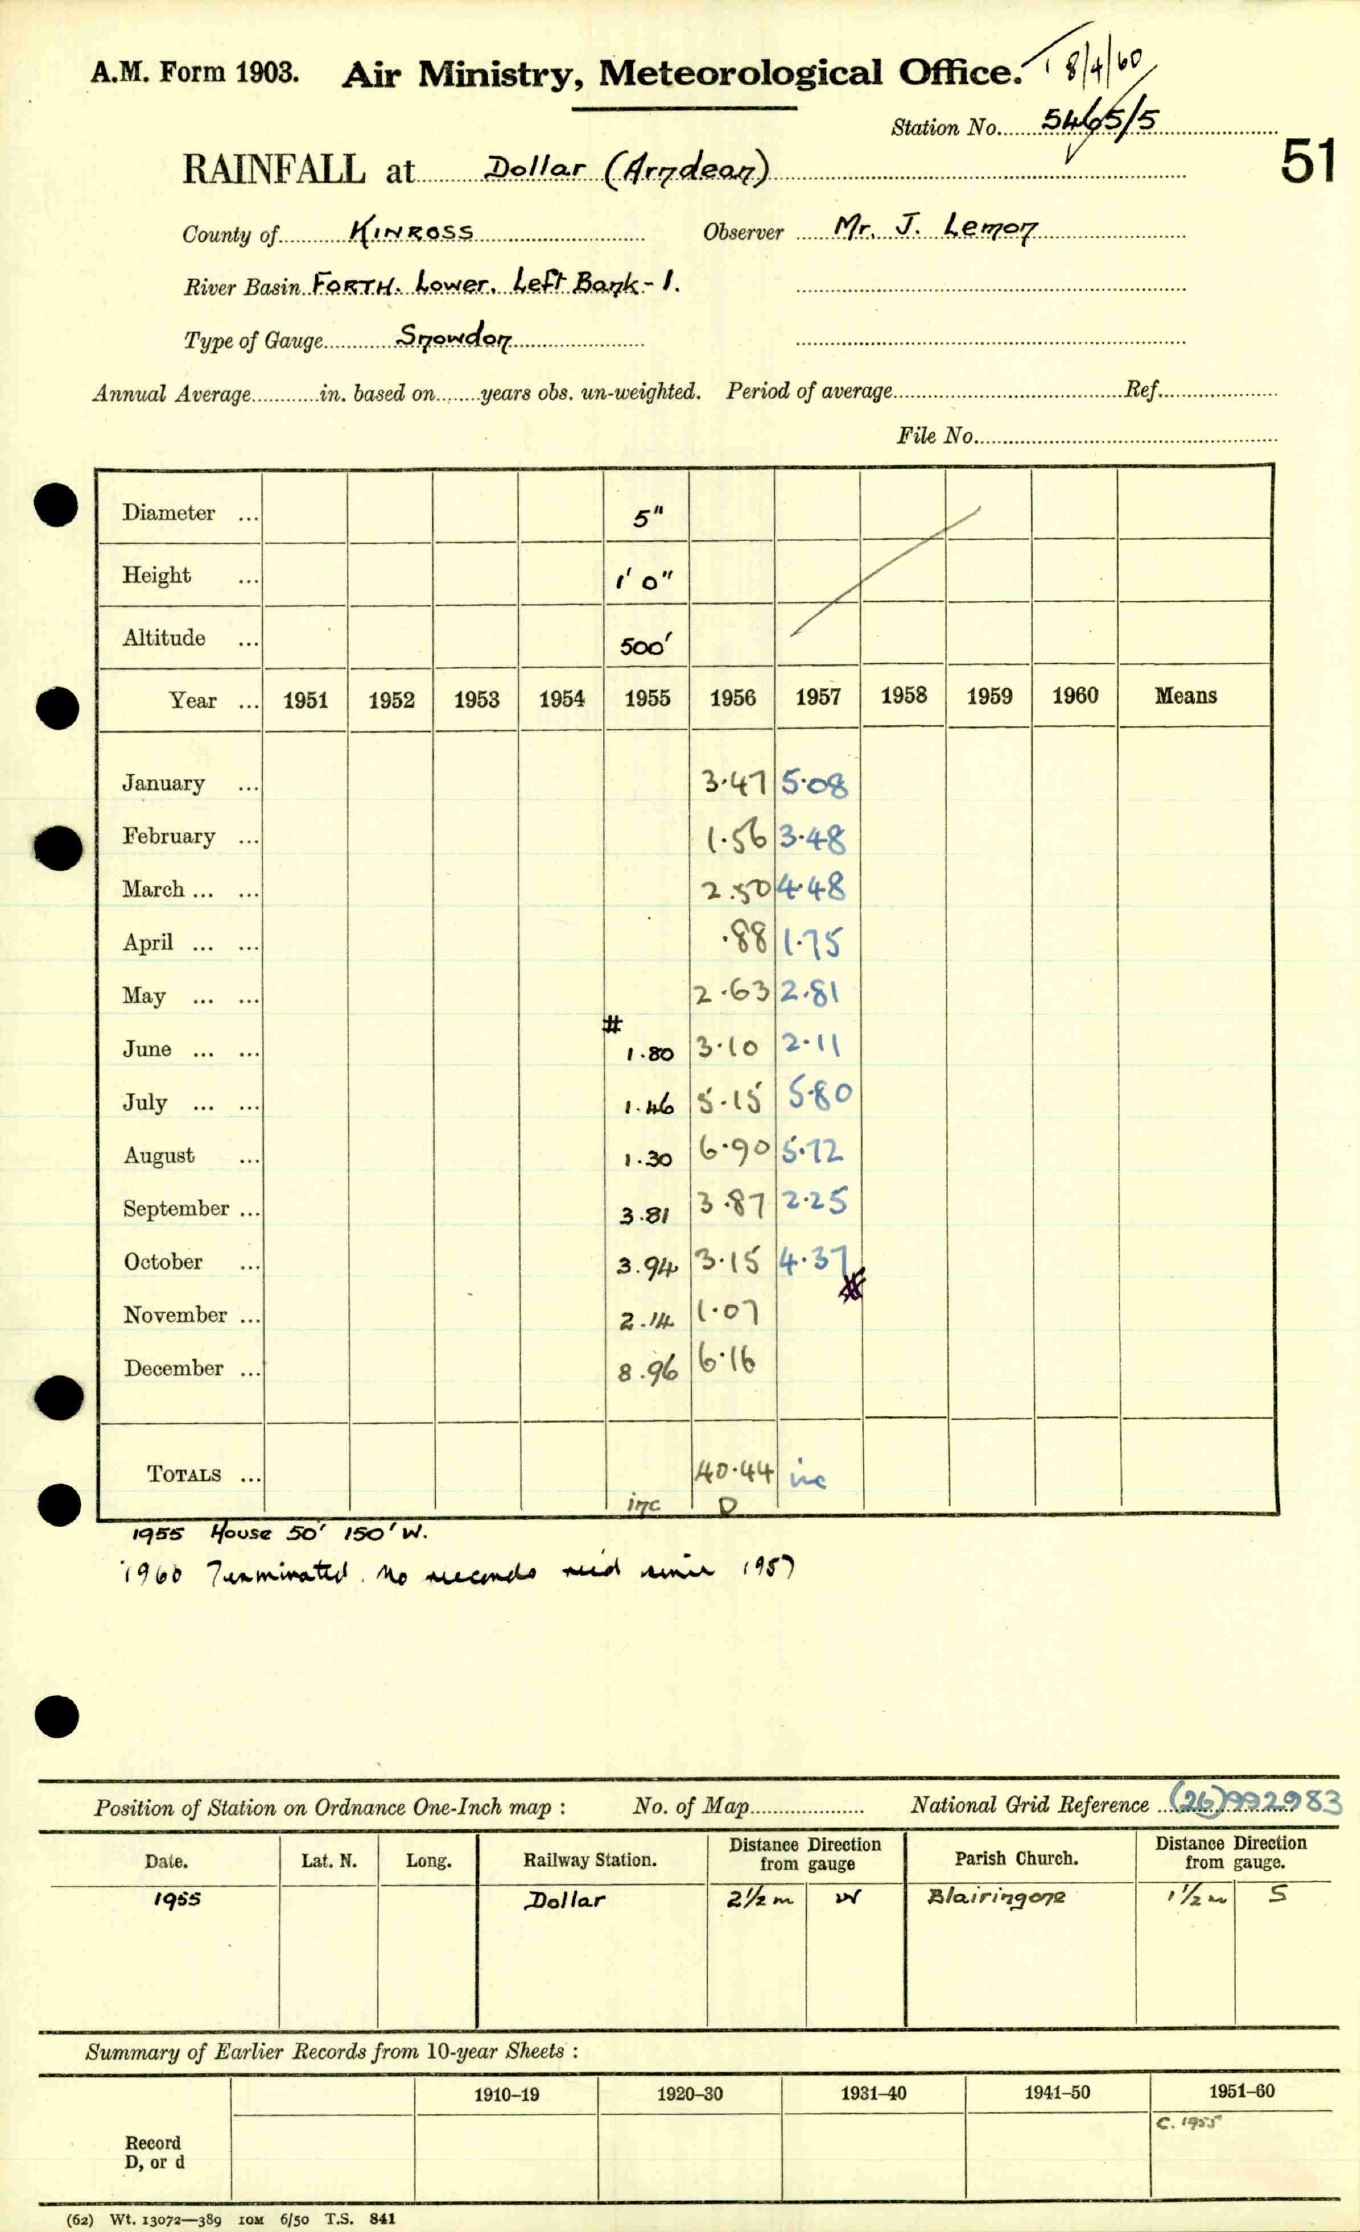 A.M. Form 1903. Air Ministry, Meteorological Office. 8/4/60
Station No. 5465/5
51
RAINFALL at Dollar (Arndean)
County of KINROSS Observer Mr. J. Lemon
River Basin FORTH. Lower. Left Bank - 1.
Type of Gauge Snowdon
Annual Average in. based on years obs. un-weighted. Period of average Ref.
File No.
Diameter ... 5"
Height ... 1' 0"
Altitude ... 500'
Year ... 1951 1952 1953 1954 1955 1956 1957 1958 1959 1960 Means
January ... 3.47 5.08
February ... 1.56 3.48
March ... ... 2.50 4.48
April ... ... .88 1.75
May ... ... 2.63 2.81
#
June ... ... 1.80 3.10 2.11
July ... ... 1.46 5.15 5.80
August ... 1.30 6.90 5.72
September ... 3.81 3.87 2.25
October ... 3.94 3.15 4.37
#
November ... 2.14 1.07
December ... 8.96 6.16
TOTALS ... 40.44 inc
inc D
1955 House 50' 150' W.
1960 Terminated. No records rec'd since 1957
Position of Station on Ordnance One-Inch map : No. of Map National Grid Reference (26)992983
Date. Lat. N. Long. Railway Station. Distance Direction from gauge Parish Church. Distance Direction from gauge.
1955 Dollar 2½ m W Blairingone 1½ m S
Summary of Earlier Records from 10-year Sheets :
1910–19 1920–30 1931–40 1941–50 1951–60
C. 1955
Record
D, or d
(62) Wt. 13072—389 10M 6/50 T.S. 841